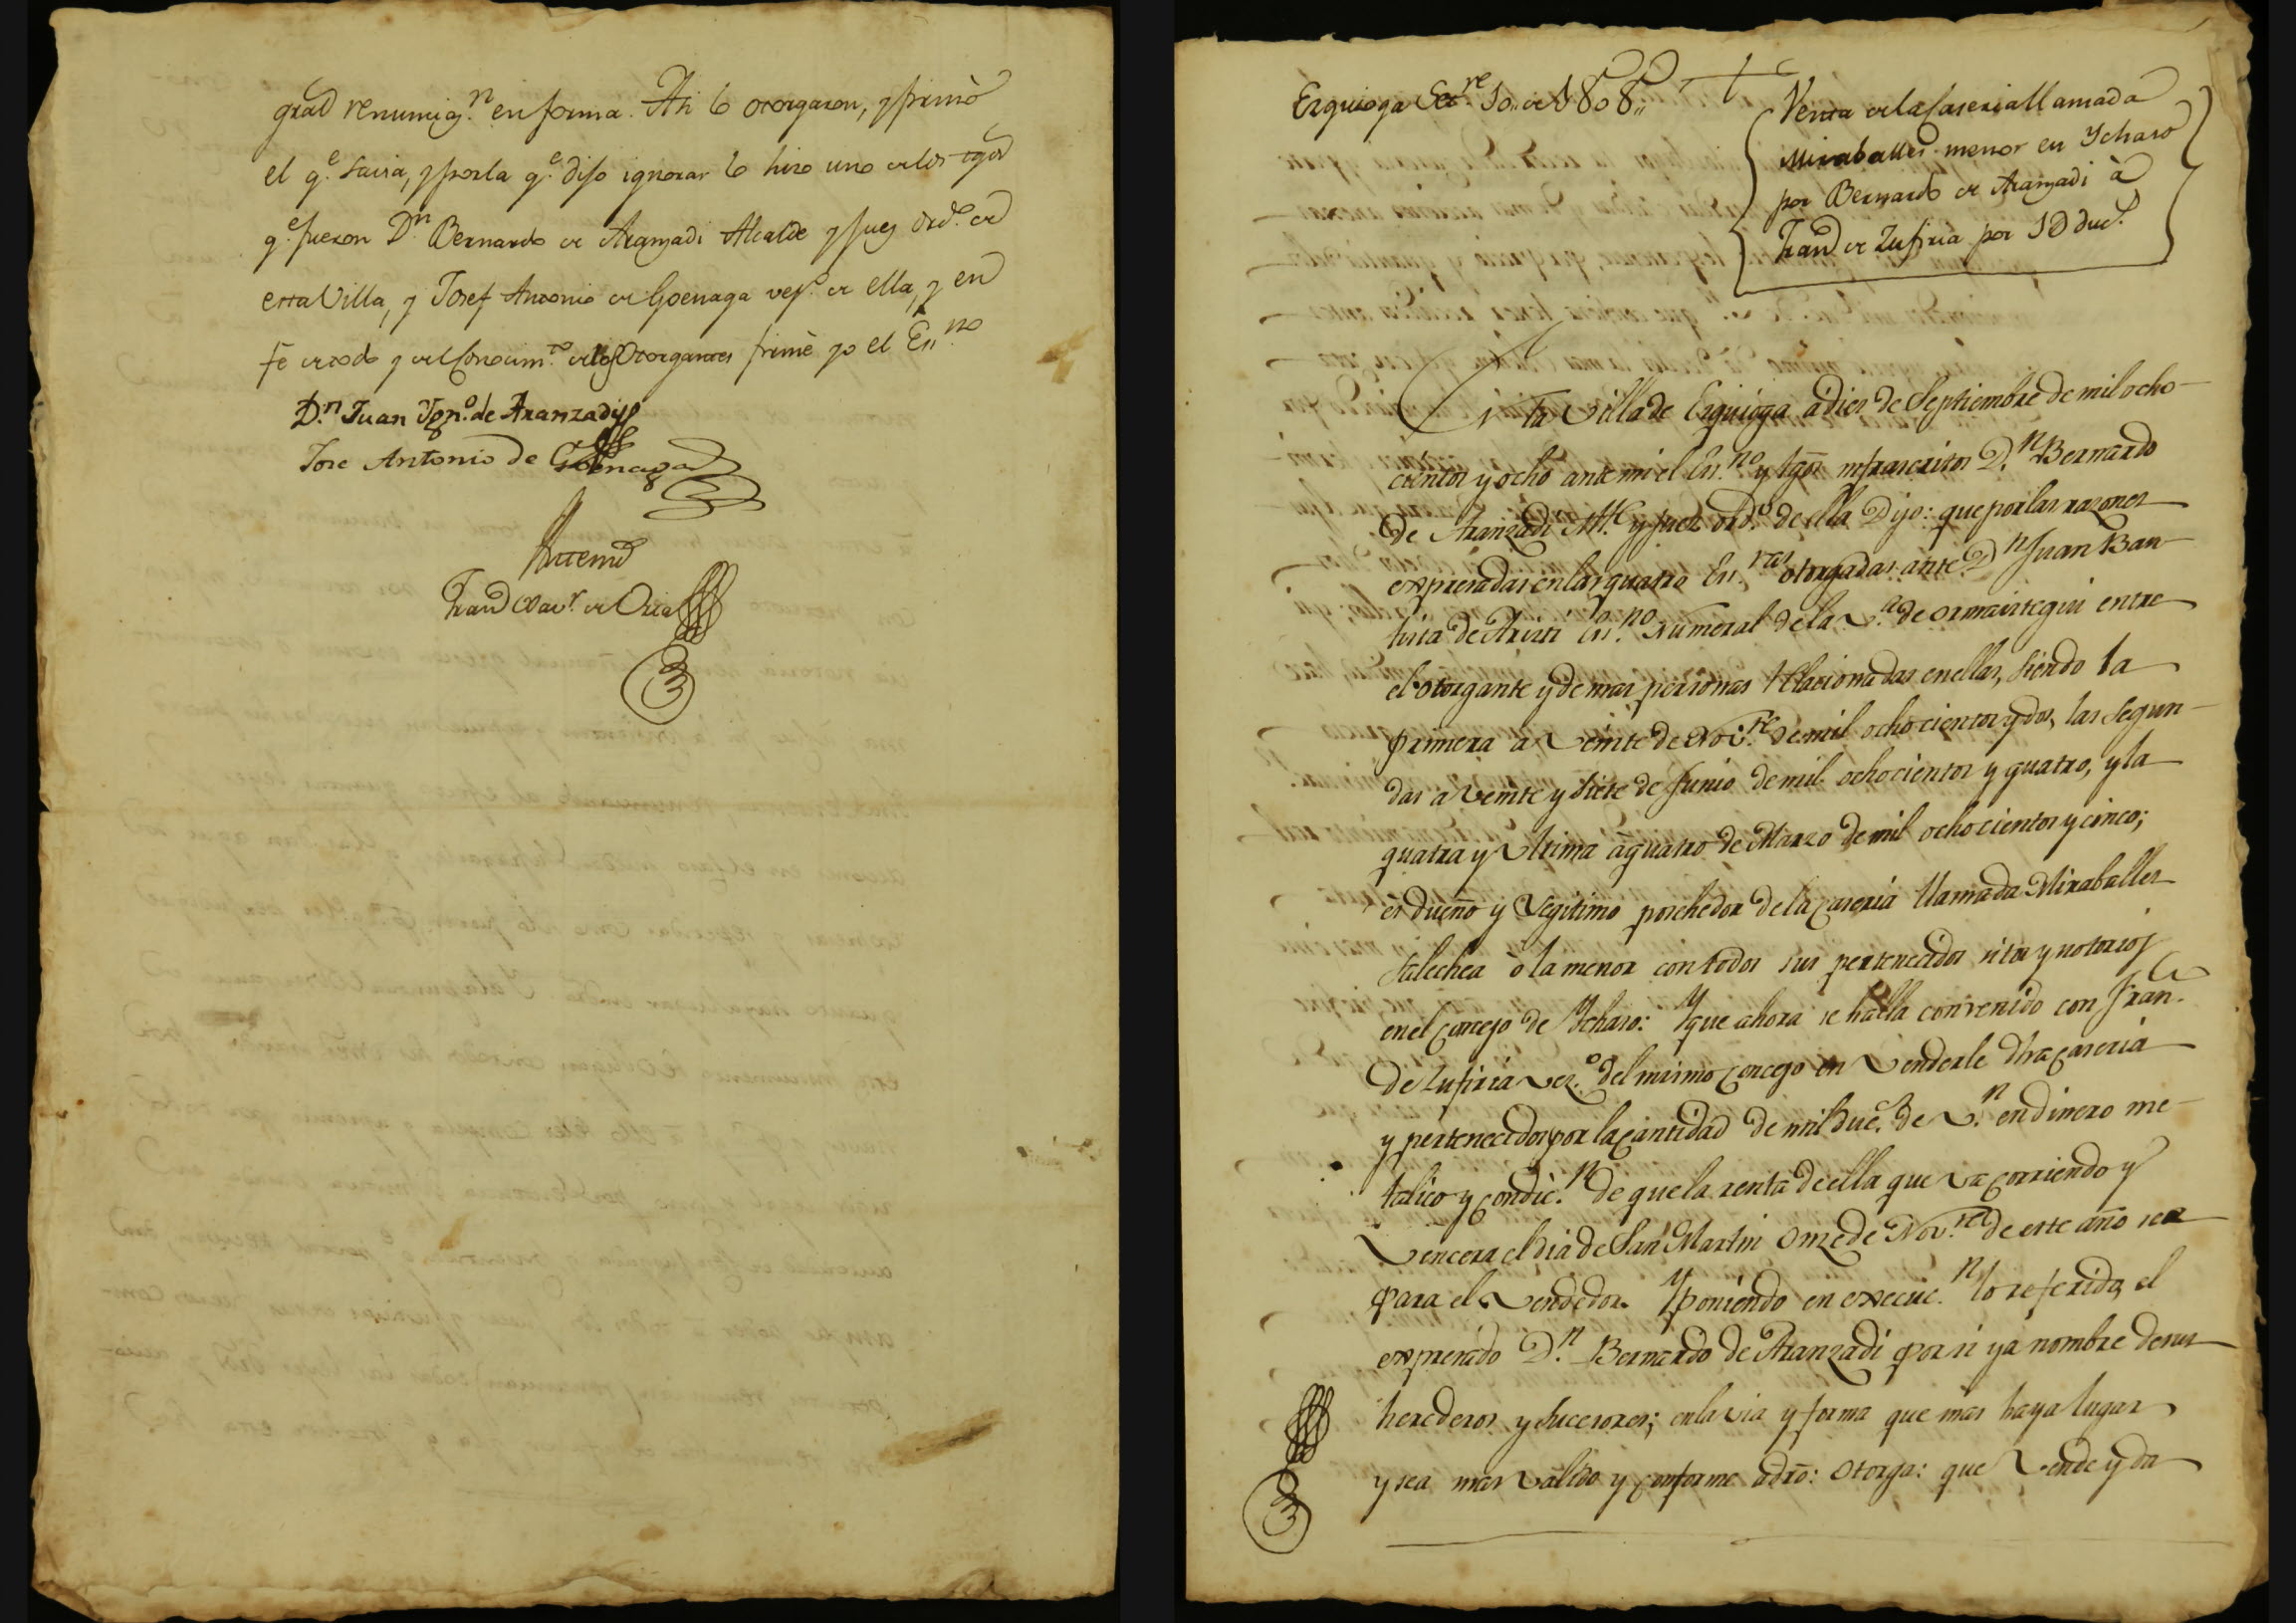 gral renunciaz.n en forma. Asi lo otorgaron, y firmó
el q.e savia, y por la q.e dijo ignorar lo hizo uno de los tgos
q.e fueron D.n Bernardo de Aranzadi Alcalde y Juez ord.o de
esta Villa, y Josef Antonio de Goenaga vez.s de ella, y en
fe de todo y del conocim.to de los Otorgantes firmé yo el Es.no
D.n Juan Ign.o de Aranzadi
Jose Antonio de Goenaga
Ante mi
Fran.co Xav.r de Oria
Ezquioga Sep.re 10,, de 1808,,
Venta de la Caseria llamada
Miraballes menor en Ychaso
por Bernardo de Aranzadi à
Fran.co de Zufiria por 1D duc.s
En la Villa de Ezquioga a diez de Septiembre de mil ocho
cientos y ocho ante mi el Es.no y tgos infrascritos D.n Bernardo
de Aranzadi Al.e y Juez ord.o de ella Dijo: que por las razones
expresadas en las quatro Es.ras otorgadas ante D.n Juan Bau
tista de Aristi Es.no Numeral de la V.a de Ormaiztegui entre
el otorgante y demas personas relacionadas en ellas, siendo la
primera a veinte de Nov.re de mil ochocientos y dos, las segun
das a veinte y siete de Junio de mil ochocientos y quatro, y la
quatra y ultima à quatro de Marzo de mil ochocientos y cinco;
es dueño y legitimo posehedor de la caseria llamada Miraballes
Salechea ò la menor con todos sus pertenecidos sitos y notorios
en el concejo de Ychaso: Y que ahora se halla convenido con Fran.co
de Zufiria vez.o del mismo concejo en venderle dha caseria
y pertenecidos por la cantidad de mil duc.s de v.n en dinero me
talico y condic.n de que la renta de ella que va corriendo y
vencera el dia de San Martin onze de Nov.re de este año sea
para el vendedor. Y poniendo en execuc.n lo referido, el
expresado D.n Bernardo de Aranzadi por si y a nombre de sus
herederos y sucesores; en la via y forma que mas haya lugar
y sea mas valido y conforme a dro: Otorga: que vende y da